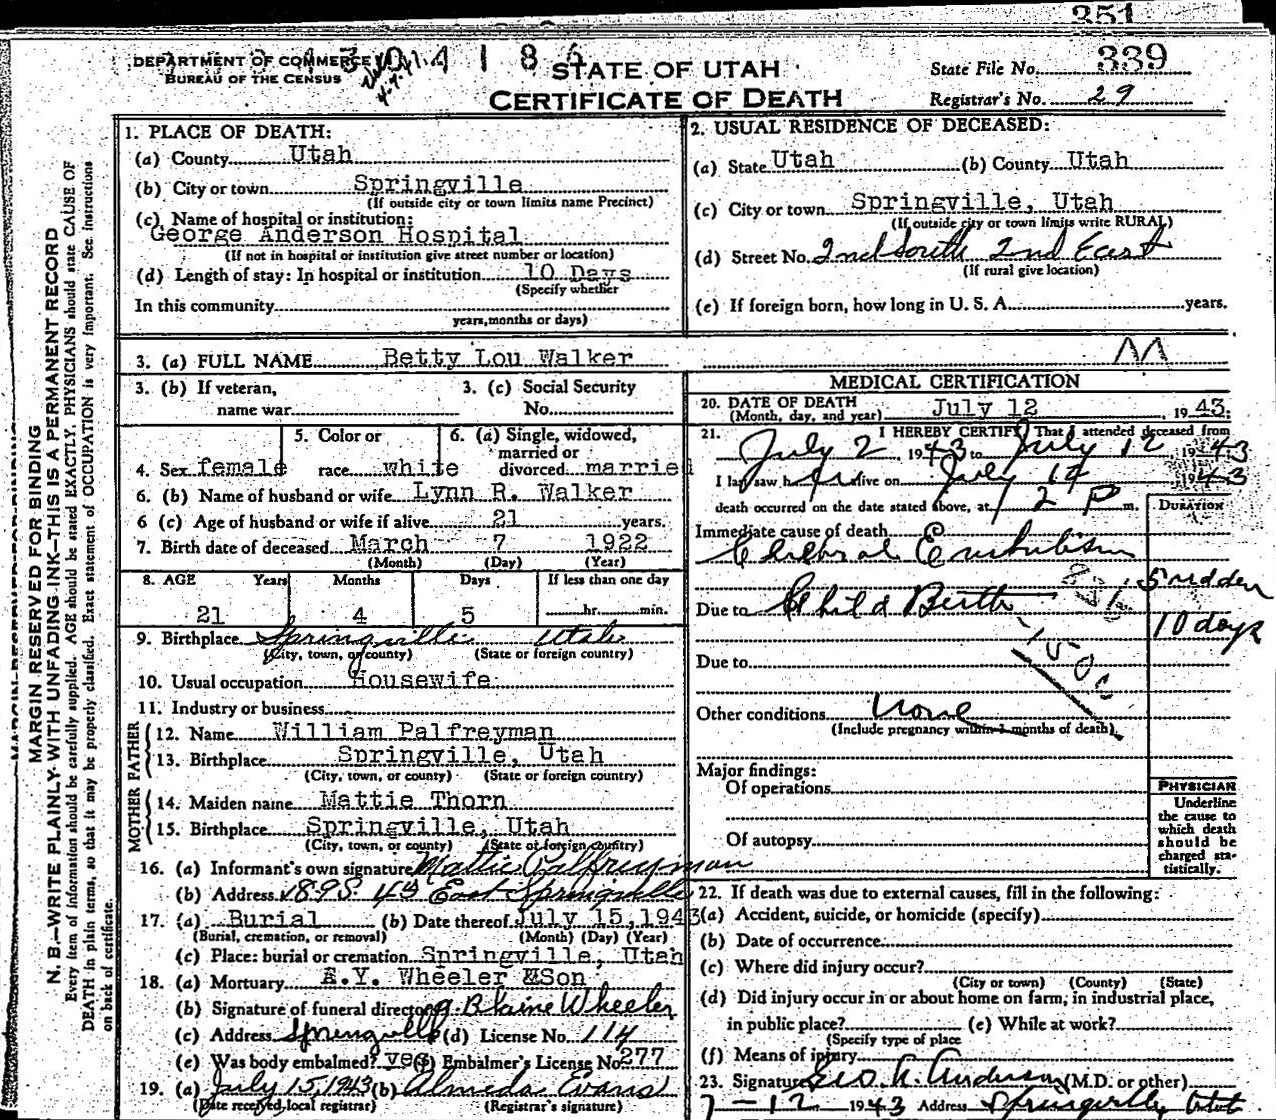 351
DEPARTMENT OF COMMERCE
BUREAU OF THE CENSUS
STATE OF UTAH
CERTIFICATE OF DEATH
State File No. 339
Registrar's No. 29
MARGIN RESERVED FOR BINDING
N. B.—WRITE PLAINLY WITH UNFADING INK—THIS IS A PERMANENT RECORD
Every item of information should be carefully supplied. AGE should be stated EXACTLY. PHYSICIANS should state CAUSE OF
DEATH in plain terms, so that it may be properly classified. Exact statement of OCCUPATION is very important. See instructions
on back of certificate.
1. PLACE OF DEATH:
(a) County Utah
(b) City or town Springville
(If outside city or town limits name Precinct)
(c) Name of hospital or institution:
George Anderson Hospital
(If not in hospital or institution give street number or location)
(d) Length of stay: In hospital or institution 10 Days
(Specify whether
In this community
years, months or days)
2. USUAL RESIDENCE OF DECEASED:
(a) State Utah (b) County Utah
(c) City or town Springville, Utah
(If outside city or town limits write RURAL)
(d) Street No. 2nd South 2nd East
(If rural give location)
(e) If foreign born, how long in U. S. A. years.
3. (a) FULL NAME Betty Lou Walker
3. (b) If veteran,
name war
3. (c) Social Security
No.
4. Sex female
5. Color or
race white
6. (a) Single, widowed,
married or
divorced married
6. (b) Name of husband or wife Lynn R. Walker
6 (c) Age of husband or wife if alive 21 years.
7. Birth date of deceased March 7 1922
(Month) (Day) (Year)
8. AGE Years Months Days If less than one day
21 4 5 hr. min.
9. Birthplace Springville Utah
(City, town, or county) (State or foreign country)
10. Usual occupation Housewife
11. Industry or business
FATHER
12. Name William Palfreyman
13. Birthplace Springville, Utah
(City, town, or county) (State or foreign country)
MOTHER
14. Maiden name Mattie Thorn
15. Birthplace Springville, Utah
(City, town, or county) (State or foreign country)
16. (a) Informant's own signature Mattie Palfreyman
(b) Address 189 S. 4th East Springville
17. (a) Burial (b) Date thereof July 15, 1943
(Burial, cremation, or removal) (Month) (Day) (Year)
(c) Place: burial or cremation Springville, Utah
18. (a) Mortuary A.Y. Wheeler &Son
(b) Signature of funeral director A. Blaine Wheeler
(c) Address Springville (d) License No. 114
(e) Was body embalmed? yes (f) Embalmer's License No. 277
19. (a) July 15, 1943 (b) Almeda Evans
(Date received, local registrar) (Registrar's signature)
MEDICAL CERTIFICATION
20. DATE OF DEATH
(Month, day, and year) July 12, 1943;
21. I HEREBY CERTIFY That I attended deceased from
July 2 1943 to July 12 1943
I last saw her alive on July 12 1943
death occurred on the date stated above, at 12 P m.
DURATION
Immediate cause of death
Cerebral Embolism
Sudden
Due to Child Birth
10 days
Due to
Other conditions None
(Include pregnancy within 3 months of death)
Major findings:
Of operations
Of autopsy
PHYSICIAN
Underline
the cause to
which death
should be
charged sta-
tistically.
22. If death was due to external causes, fill in the following:
(a) Accident, suicide, or homicide (specify)
(b) Date of occurrence
(c) Where did injury occur?
(City or town) (County) (State)
(d) Did injury occur in or about home on farm, in industrial place,
in public place? (e) While at work?
(Specify type of place
(f) Means of injury
23. Signature Geo. A. Anderson (M.D. or other)
7-12 1943 Address Springville, Utah